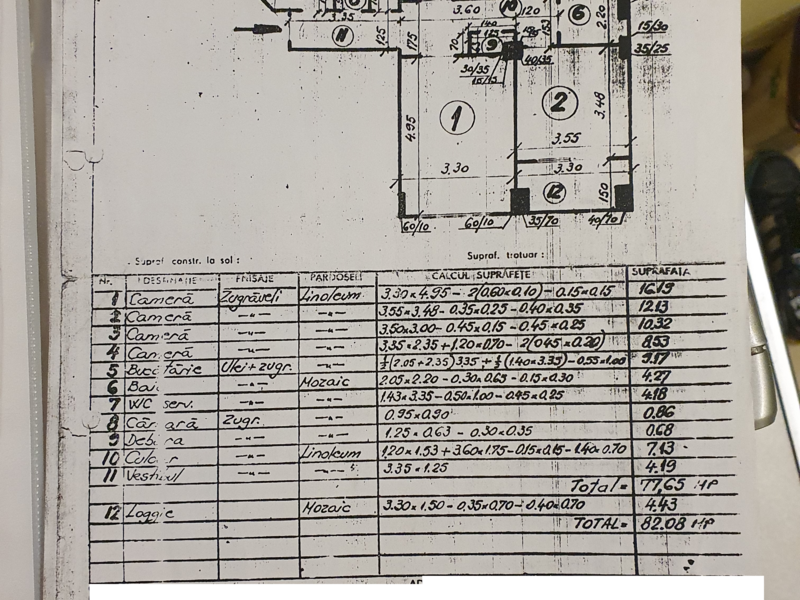 3.35
3.60
10
120
6
2.20
15/30
11
125
175
70
140
125
9
153
35/25
40/35
30/35
15/15
1
2
4.95
3.48
3.55
3.30
3.30
12
150
60/10
60/10
35/70
40/70
Supraf. constr. la sol :
Supraf. trotuar :
Nr. FINISAJE PARDOSELI CALCUL SUPRAFEȚE SUPRAFAȚA
1 Cameră Zugrăveli Linoleum 3.30 x 4.95 - 2(0.60x0.10) - 0.15x0.15 16.19
2 Cameră -"- -"- 3.55x3.48 - 0.35x0.25 - 0.40x0.35 12.13
3 Cameră -"- -"- 3.50x3.00 - 0.45x0.15 - 0.45x0.25 10.32
4 Cameră -"- -"- 3.35x2.35 + 1.20x0.70 - 2(0.45x0.20) 8.53
5 Bucătărie Ulei+zugr. -"- ½(2.05+2.35)3.35 + ½(1.40x3.35) - 0.55x1.00 9.17
6 Baie -"- Mozaic 2.05x2.20 - 0.30x0.65 - 0.15x0.30 4.27
7 WC serv. -"- -"- 1.43x3.35 - 0.50x1.00 - 0.45x0.25 4.18
8 Cămară Zugr. -"- 0.95x0.90 0.86
9 Debara -"- -"- 1.25x0.63 - 0.30x0.35 0.68
10 -"- Linoleum 1.20x1.53 + 3.60x1.75 - 0.15x0.15 - 1.40x0.70 7.13
11 Vestibul -"- -"- 3.35x1.25 4.19
Total = 77,65 MP
12 Loggie Mozaic 3.30x1.50 - 0.35x0.70 - 0.40x0.70 4.43
TOTAL = 82.08 MP